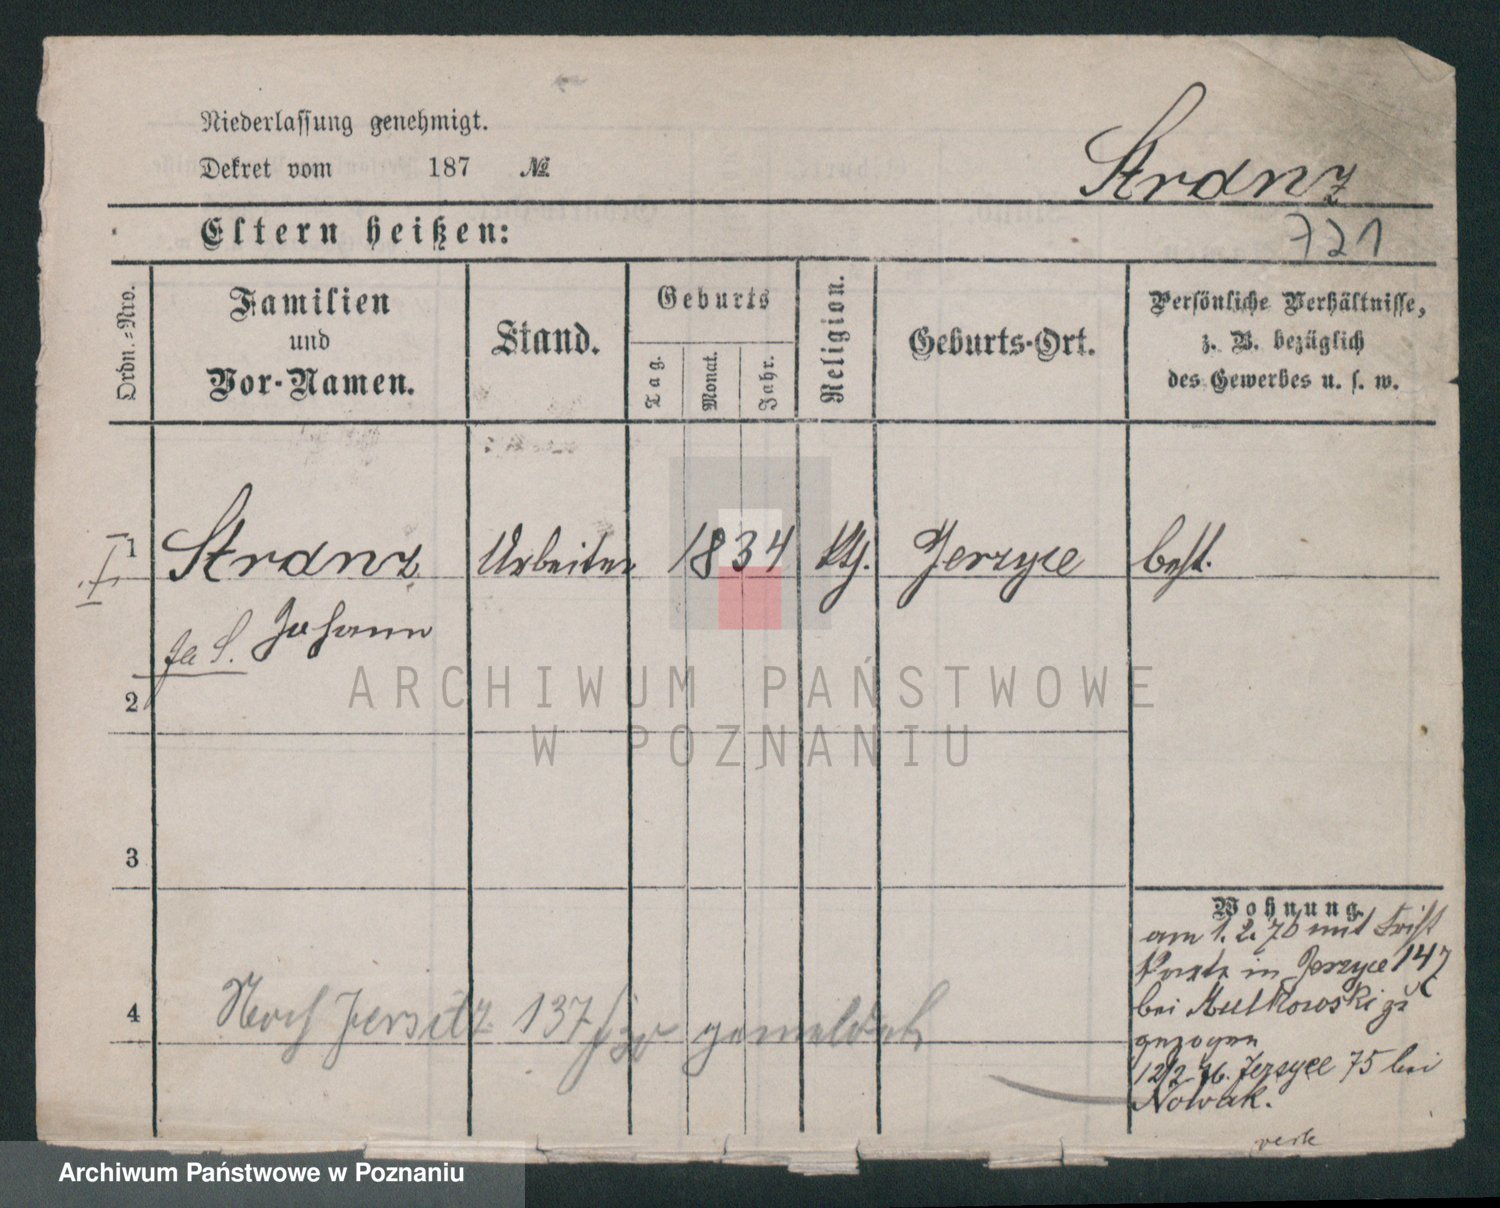 Niederlassung genehmigt.
Dekret vom 187 №
Strdnz
721
Eltern heißen:
Ordn.-Nro.
Familien
und
Vor-Namen.
Stand.
Geburts
Tag.
Monat.
Jahr.
Religion.
Geburts-Ort.
Persönliche Verhältnisse,
z. B. bezüglich
des Gewerbes u. s. w.
I 1 Strdnz Arbeiter 1834 Kth. Jerzyce best.
Johann
2
3
4
Noch Jersitz 137 gemeldet
Wohnung.
am 1. 2. 76 mit
in Jerzyce 147
bei Mulkowski zu
gezogen
12/2 76. Jerzyce 75 bei
Nowak.
ARCHIWUM PAŃSTWOWE
W POZNANIU
Archiwum Państwowe w Poznaniu